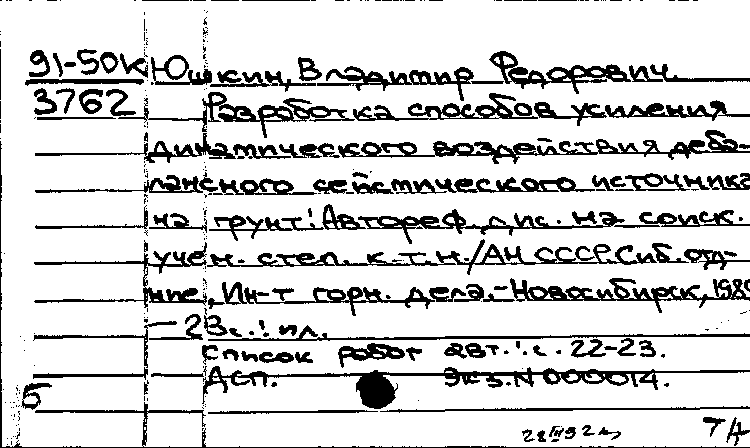 91-50К Юшкин, Владимир Федорович.
3762 Разработка способов усиления
динамического воздействия деба-
лансного сейсмического источника
на грунт: Автореф. дис. на соиск.
учен. степ. к.т.н./АН СССР. Сиб. отд-
ние, Ин-т горн. дела.-Новосибирск, 1989
- 23с.: ил.
Список работ авт.: с. 22-23.
ДСП. Экз. N 000014.
Б